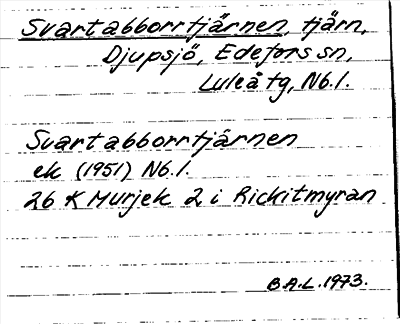 Svartabborrtjärnen, tjärn,
Djupsjö, Edefors sn,
Luleå tg, Nb.l.
Svartabborrtjärnen
ek (1951) Nb.l.
26 K Murjek 2 i Rickitmyran
B.A.L. 1973.